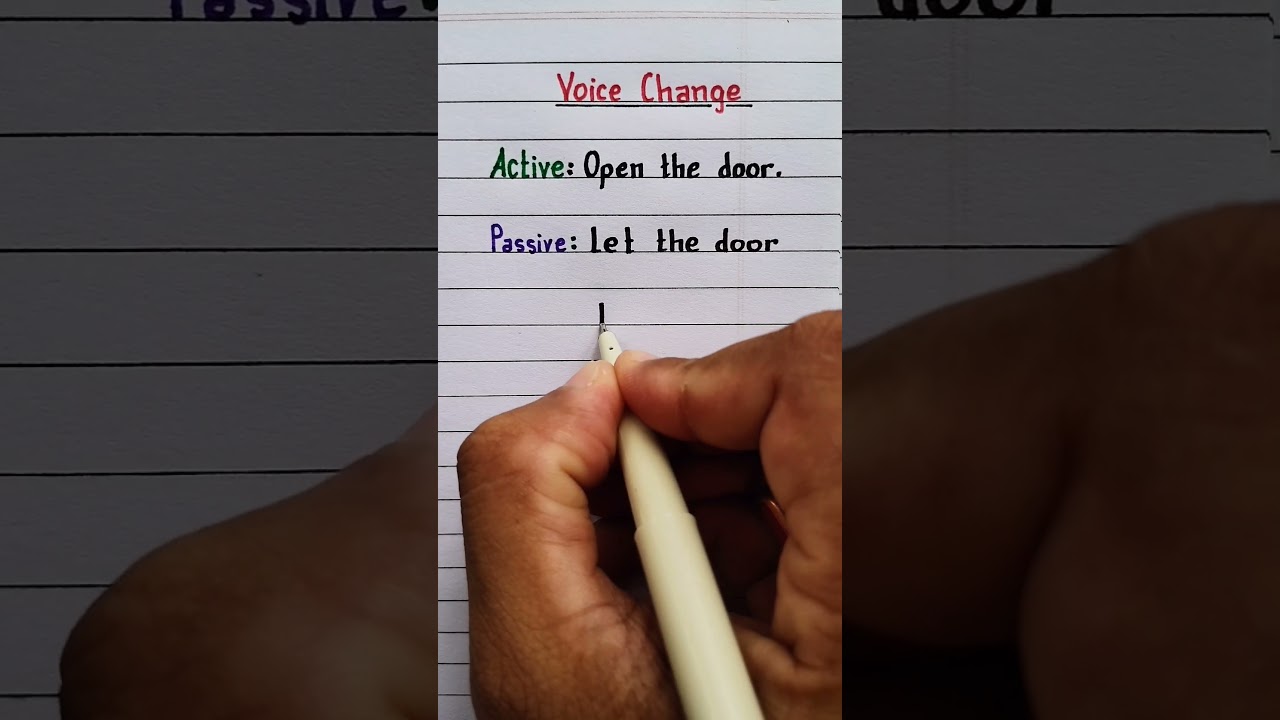 Voice Change
Active: Open the door.
Passive: Let the door